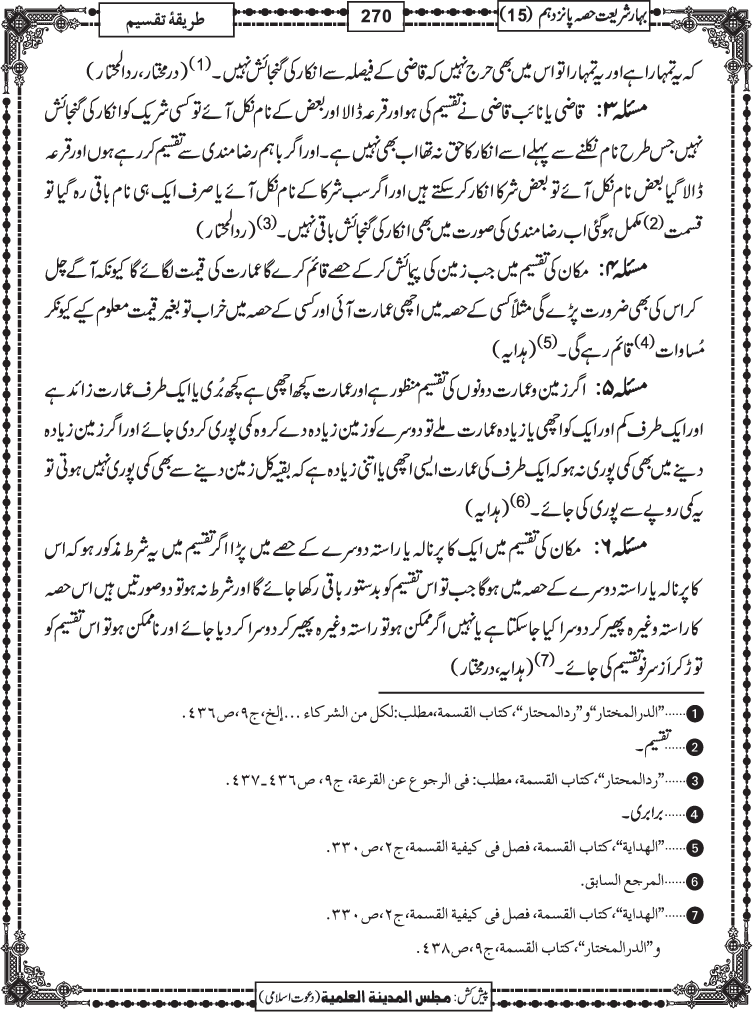 بہارِ شریعت حصہ پانزدہم (15)
270
طریقۂ تقسیم
کہ یہ تمہارا ہے اور یہ تمہارا تو اس میں بھی حرج نہیں کہ قاضی کے فیصلہ سے انکار کی گنجائش نہیں۔(1) (درمختار، ردالمحتار)
مسئلہ ۳: قاضی یا نائب قاضی نے تقسیم کی ہو اور قرعہ ڈالا اور بعض کے نام نکل آئے تو کسی شریک کو انکار کی گنجائش
نہیں جس طرح نام نکلنے سے پہلے اسے انکار کا حق نہ تھا اب بھی نہیں ہے۔ اور اگر باہم رضامندی سے تقسیم کر رہے ہوں اور قرعہ
ڈالا گیا بعض نام نکل آئے تو بعض شرکا انکار کر سکتے ہیں اور اگر سب شرکا کے نام نکل آئے یا صرف ایک ہی نام باقی رہ گیا تو
قسمت(2) مکمل ہو گئی اب رضامندی کی صورت میں بھی انکار کی گنجائش باقی نہیں۔(3) (ردالمحتار)
مسئلہ ۴: مکان کی تقسیم میں جب زمین کی پیمائش کر کے حصے قائم کرے گا عمارت کی قیمت لگائے گا کیونکہ آگے چل
کر اس کی بھی ضرورت پڑے گی مثلاً کسی کے حصہ میں اچھی عمارت آئی اور کسی کے حصہ میں خراب تو بغیر قیمت معلوم کیے کیونکر
مُساوات(4) قائم رہے گی۔(5) (ہدایہ)
مسئلہ ۵: اگر زمین و عمارت دونوں کی تقسیم منظور ہے اور عمارت کچھ اچھی ہے کچھ بُری یا ایک طرف عمارت زائد ہے
اور ایک طرف کم اور ایک کو اچھی یا زیادہ عمارت ملے تو دوسرے کو زمین زیادہ دے کر وہ کمی پوری کر دی جائے اور اگر زمین زیادہ
دینے میں بھی کمی پوری نہ ہو کہ ایک طرف کی عمارت ایسی اچھی یا اتنی زیادہ ہے کہ بقیہ کل زمین دینے سے بھی کمی پوری نہیں ہوتی تو
یہ کمی روپے سے پوری کی جائے۔(6) (ہدایہ)
مسئلہ ۶: مکان کی تقسیم میں ایک کا پرنالہ یا راستہ دوسرے کے حصے میں پڑا اگر تقسیم میں یہ شرط مذکور ہو کہ اس
کا پرنالہ یا راستہ دوسرے کے حصہ میں ہوگا جب تو اس تقسیم کو بدستور باقی رکھا جائے گا اور شرط نہ ہو تو دو صورتیں ہیں اس حصہ
کا راستہ وغیرہ پھیر کر دوسرا کیا جا سکتا ہے یا نہیں اگر ممکن ہو تو راستہ وغیرہ پھیر کر دوسرا کر دیا جائے اور ناممکن ہو تو اس تقسیم کو
توڑ کر از سرِ نو تقسیم کی جائے۔(7) (ہدایہ، درمختار)
1......”الدرالمختار“و”ردالمحتار“،کتاب القسمة،مطلب:لکل من الشرکاء ...إلخ،ج۹،ص۴۳۶.
2......تقسیم۔
3......”ردالمحتار“،کتاب القسمة، مطلب: فی الرجوع عن القرعة، ج۹، ص۴۳۶۔۴۳۷.
4......برابری۔
5......”الهداية“،کتاب القسمة، فصل فی کیفیة القسمة،ج۲،ص۳۳۰.
6......المرجع السابق.
7......”الهداية“،کتاب القسمة، فصل فی کیفیة القسمة،ج۲،ص۳۳۰.
و”الدرالمختار“،کتاب القسمة،ج۹،ص۴۳۸.
پیش کش: مجلس المدینۃ العلمیۃ (دعوت اسلامی)